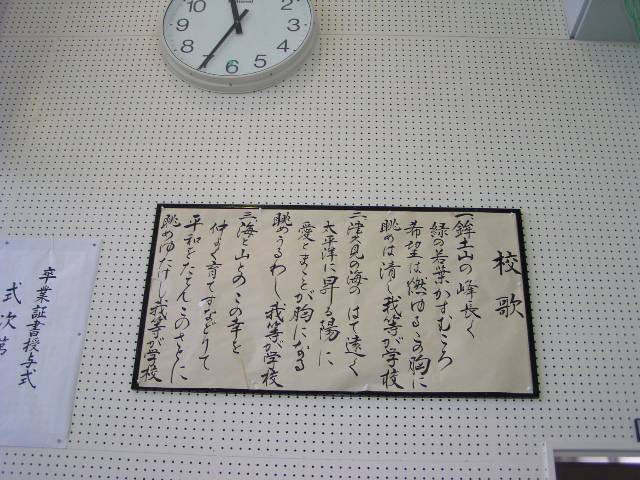 校歌
一、鉾土山の峰長く
緑の若葉かすむころ
希望は燃ゆるこの胸に
眺めは清し我等が学校
二、津久見の海のはて遠く
太平洋に昇る陽に
愛とまことが胸になる
眺めうるわし我等が学校
三、海と山とのこの幸と
仲よく育てすなどりて
平和をたとんこのさとに
眺めゆたけし我等が学校
卒業証書授与式
式次第
10
9
8
7
6
5
4
3
2